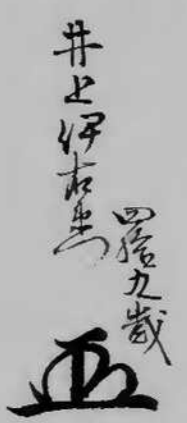 井上伊右衛門
四拾九歳